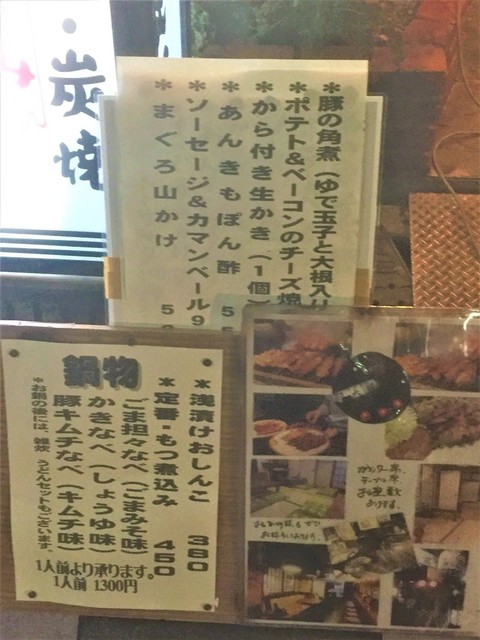 ・炭焼
＊豚の角煮（ゆで玉子と大根入り
＊ポテト＆ベーコンのチーズ焼
＊から付き生かき（1個）
＊あんきもぽん酢 55
＊ソーセージ＆カマンベール 9
＊まぐろ山かけ 5
＊浅漬けおしんこ 380
＊定番・もつ煮込み 450
鍋物
ごま担々なべ（ごまみそ味）
かきなべ（しょうゆ味）
豚キムチなべ（キムチ味）
＊お鍋の後には、雑炊、うどんセットもございます。
1人前より承ります。
1人前 1300円
カウンター席、
テーブル席
お座敷
あります。